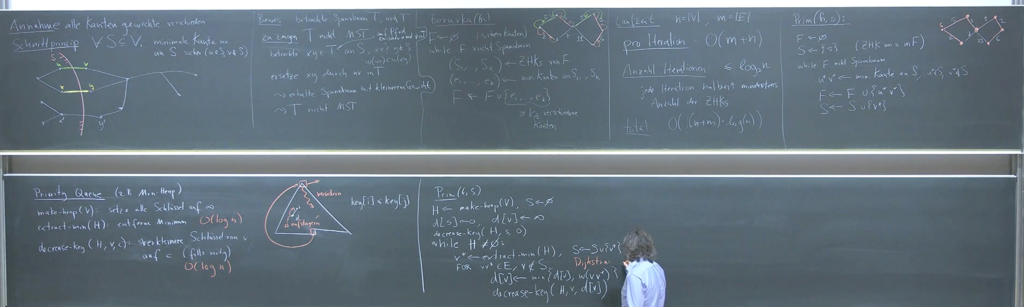 Annahme alle Kantengewichte verschieden
Schnittprinzip ∀S⊆V, minimale Kante
an S
Beweis betrachte Spannbaum T,
zu zeigen T nicht MST
betrachte
ersetze xy durch uv in T
→ erhalte Spannbaum mit kleinerem Gewicht
→ T nicht MST
Boruvka(G)
F←∅ (sichere Kanten)
while F nicht Spannbaum
(S₁, ..., Sₖ) ← ZHKs von F
(e₁, ..., eₖ) ← min Kanten an S₁, Sₖ
F ← F ∪ {e₁, ..., eₖ}
verschiedene
Kanten
Laufzeit n=|V|, m=|E|
pro Iteration O(m+n)
Anzahl Iterationen ≤ log₂n
jede Iteration halbiert mindestens
Anzahl der ZHKs
total O((n+m)·log(n))
Prim(G,s):
F←∅
S←{s} (ZHK von s in F)
while F nicht Spannbaum
u*v* ← min Kante an S, u*∈S, v*∉S
F←F ∪{u*v*}
S←S∪{v*}
Priority Queue (z.B. Min-Heap)
make-heap(V): setze alle Schlüssel auf ∞
extract-min(H): entferne Minimum O(log n)
decrease-key(H, v, c): verkleinere Schlüssel von v
auf c (falls nötig)
O(log n)
versickern
aufsteigen
key[i] ≤ key[j]
Prim(G,s)
H ← make-heap(V), S←∅
d[s]←0, d[v]←∞
decrease-key(H, s, 0)
while H≠∅:
v* ← extract-min(H), S←S∪{v*}
FOR vv*∈E, v∉S Dijkstra
d[v]← min{d[v], w(vv*)}
decrease-key(H, v, d[v])